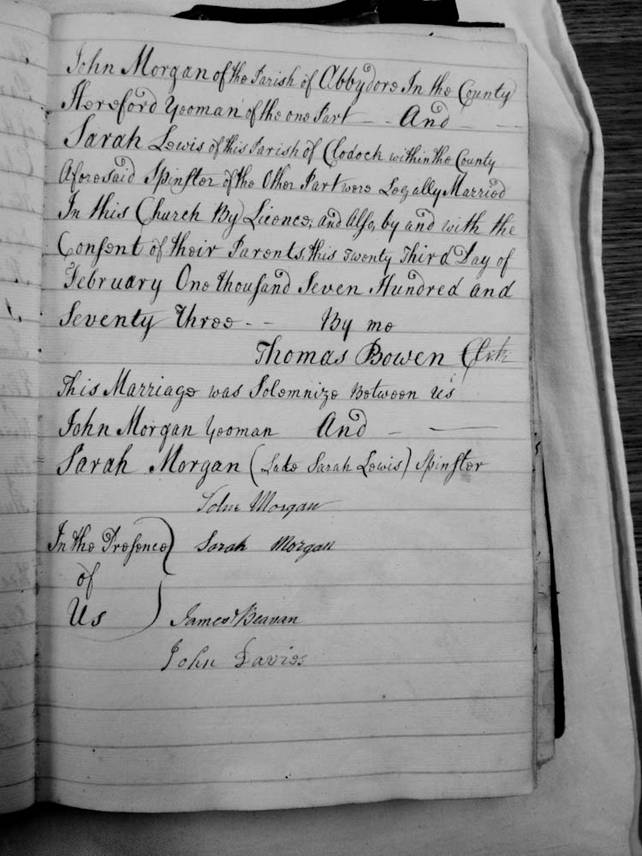 John Morgan of the Parish of Abbydore In the County
Hereford Yeoman of the one Part - - And - -
Sarah Lewis of this Parish of Clodock within the County
Aforesaid Spinster of the Other Part were Legally Married
In this Church By Licence, and Also, by and with the
Consent of their Parents, this Twenty Third Day of
February One thousand Seven Hundred and
Seventy Three - - By me
Thomas Bowen Clerk
This Marriage was Solemnize Between Us
John Morgan Yeoman And - —
Sarah Morgan (Late Sarah Lewis) Spinster
John Morgan
In the Presence Sarah Morgan
of
Us James Beavan
John Davies